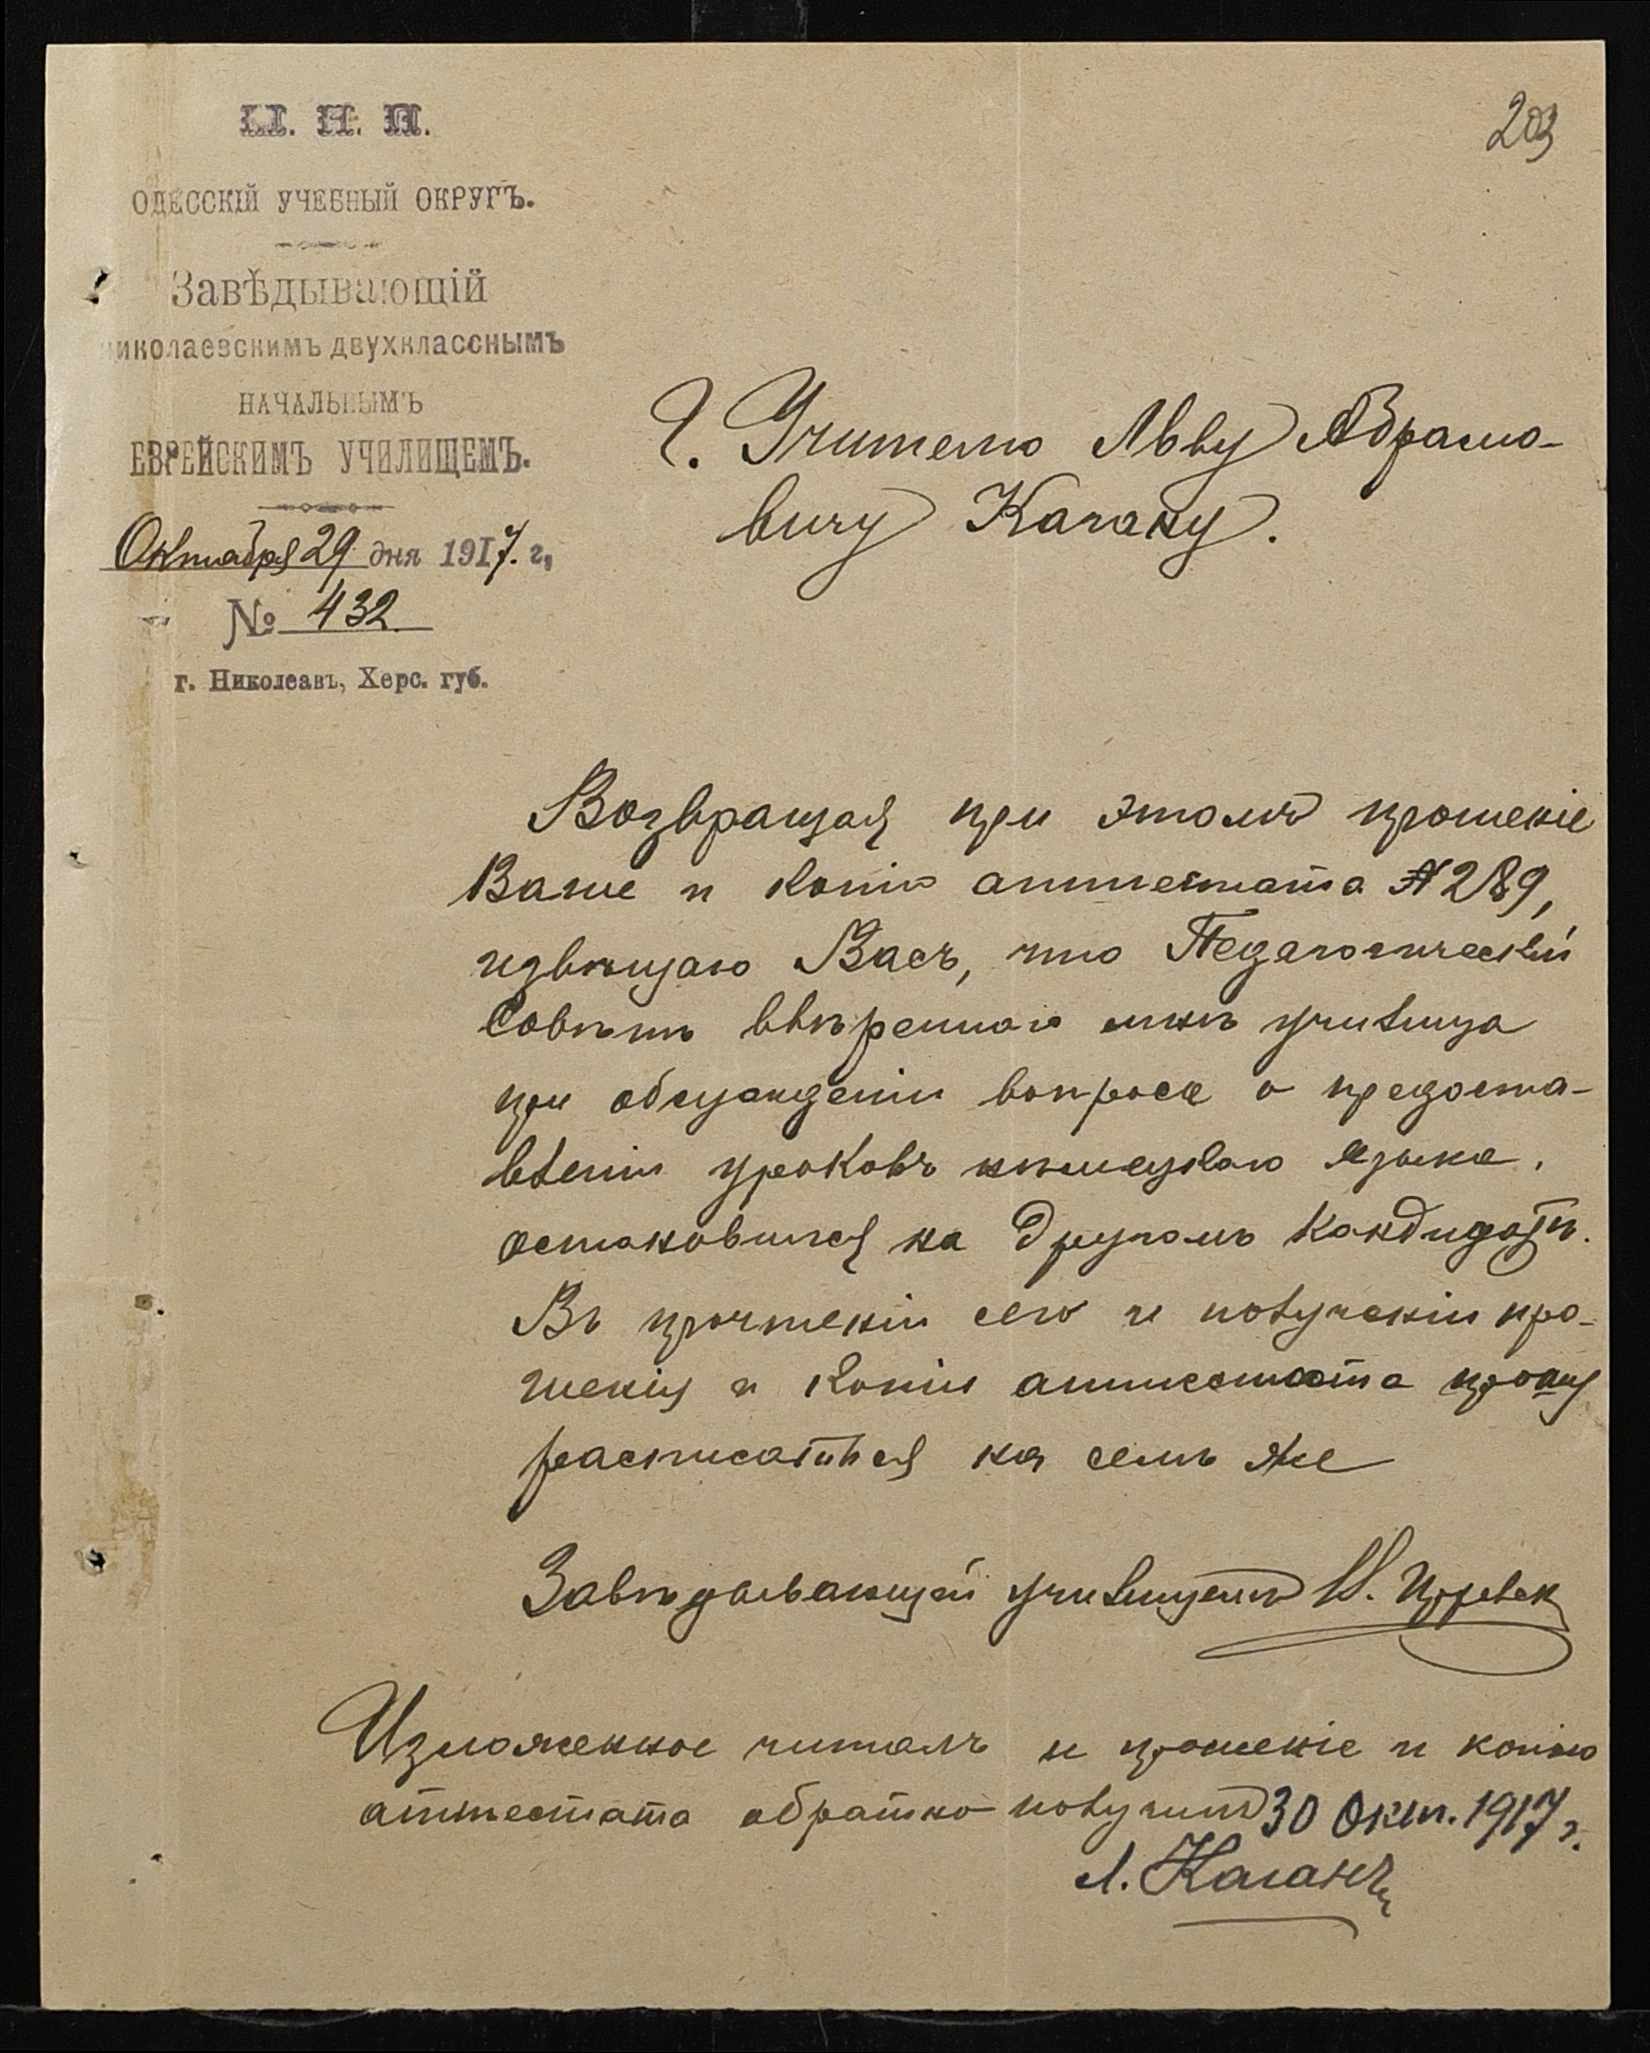 М. Н. П.
203
ОДЕССКІЙ УЧЕБНЫЙ ОКРУГЪ.
Завѣдывающій
НИКОЛАЕВСКИМЪ ДВУХКЛАССНЫМЪ
НАЧАЛЬНЫМЪ
ЕВРЕЙСКИМЪ УЧИЛИЩЕМЪ.
Октября 29 дня 1917. г,
№ 432.
г. Николеавъ, Херс. губ.
Г. Учителю Льву Абрамо-
вичу Кагану.
Возвращая при этомъ прошеніе
Ваше и копію аттестата № 289,
извѣщаю Васъ, что Педагогическій
Совѣтъ ввѣреннаго мнѣ училища
при обсужденіи вопроса о предоста-
вленіи уроковъ нѣмецкаго языка,
остановился на другомъ кандидатѣ.
Въ прочтеніи сего и полученіи про-
шенія и копіи аттестата прошу
расписаться на семъ же
Завѣдывающій училищемъ
Изложенное читалъ и прошеніе и копію
аттестата обратно получилъ 30 Окт. 1917 г.
Л. Каганъ